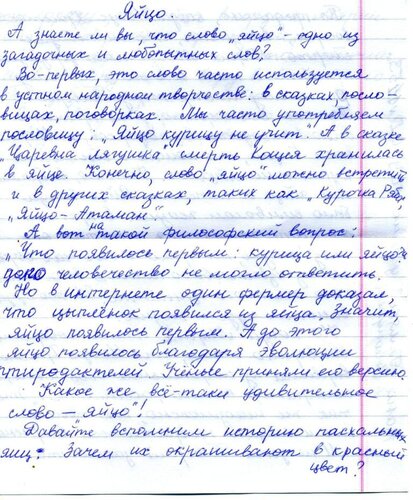 Яйцо.
А знаете ли вы, что слово „яйцо" - одно из
загадочных и любопытных слов?
Во-первых, это слово часто используется
в устном народном творчестве: в сказках, посло-
вицах, поговорках. Мы часто употребляем
пословицу: „Яйцо курицу не учит". А в сказке
„Царевна лягушка" смерть Кощея хранилась
в яйце. Конечно, слово „яйцо" можно встретить
и в других сказках, таких как „Курочка Ряба",
„Яйцо-Атаман".
А вот на такой философский вопрос:
„Что появилось первым: курица или яйцо?"
долго человечество не могло ответить.
Но в интернете один фермер доказал,
что цыплёнок появился из яйца. Значит,
яйцо появилось первым. А до этого
яйцо появилось благодаря эволюции
птиродактелей. Учёные приняли его версию.
Какое же всё-таки удивительное
слово — „яйцо"!
Давайте вспомним историю пасхальных
яиц. Зачем их окрашивают в красный
цвет?